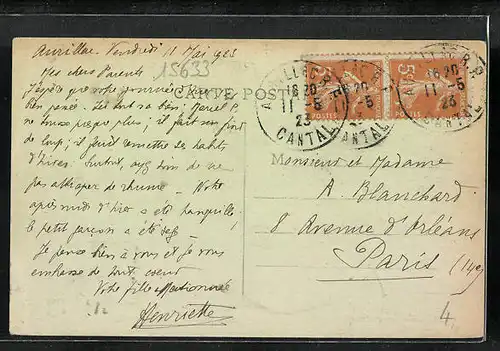 Aurillac Vendredi 11 Mai 1923
15633
Mes chers Parents
CARTE POSTALE
J'espère que votre
bien passé. Ici tout va bien. Marcel P.
ne tousse presque plus ; il fait un froid
de loup ; il faut remettre ses habits
d'hiver. Surtout, ayez soin de ne
pas attraper de rhume. Notre
après midi d'hier a été tranquille,
le petit garçon a été sage
Je pense bien à vous et je vous
embrasse de tout coeur
Votre fille affectionnée
Henriette
16 20
11 - 5
23
CANTAL
5c
16 20
5
CANTAL
16 20
11 - 5
23
CANTAL
Monsieur et Madame
A. Blanchard
8 Avenue d'Orléans
Paris
(14e)
4